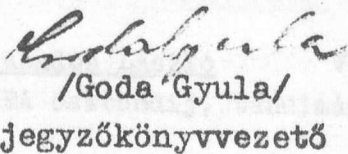 Goda Gyula
/Goda Gyula/
jegyzőkönyvvezető